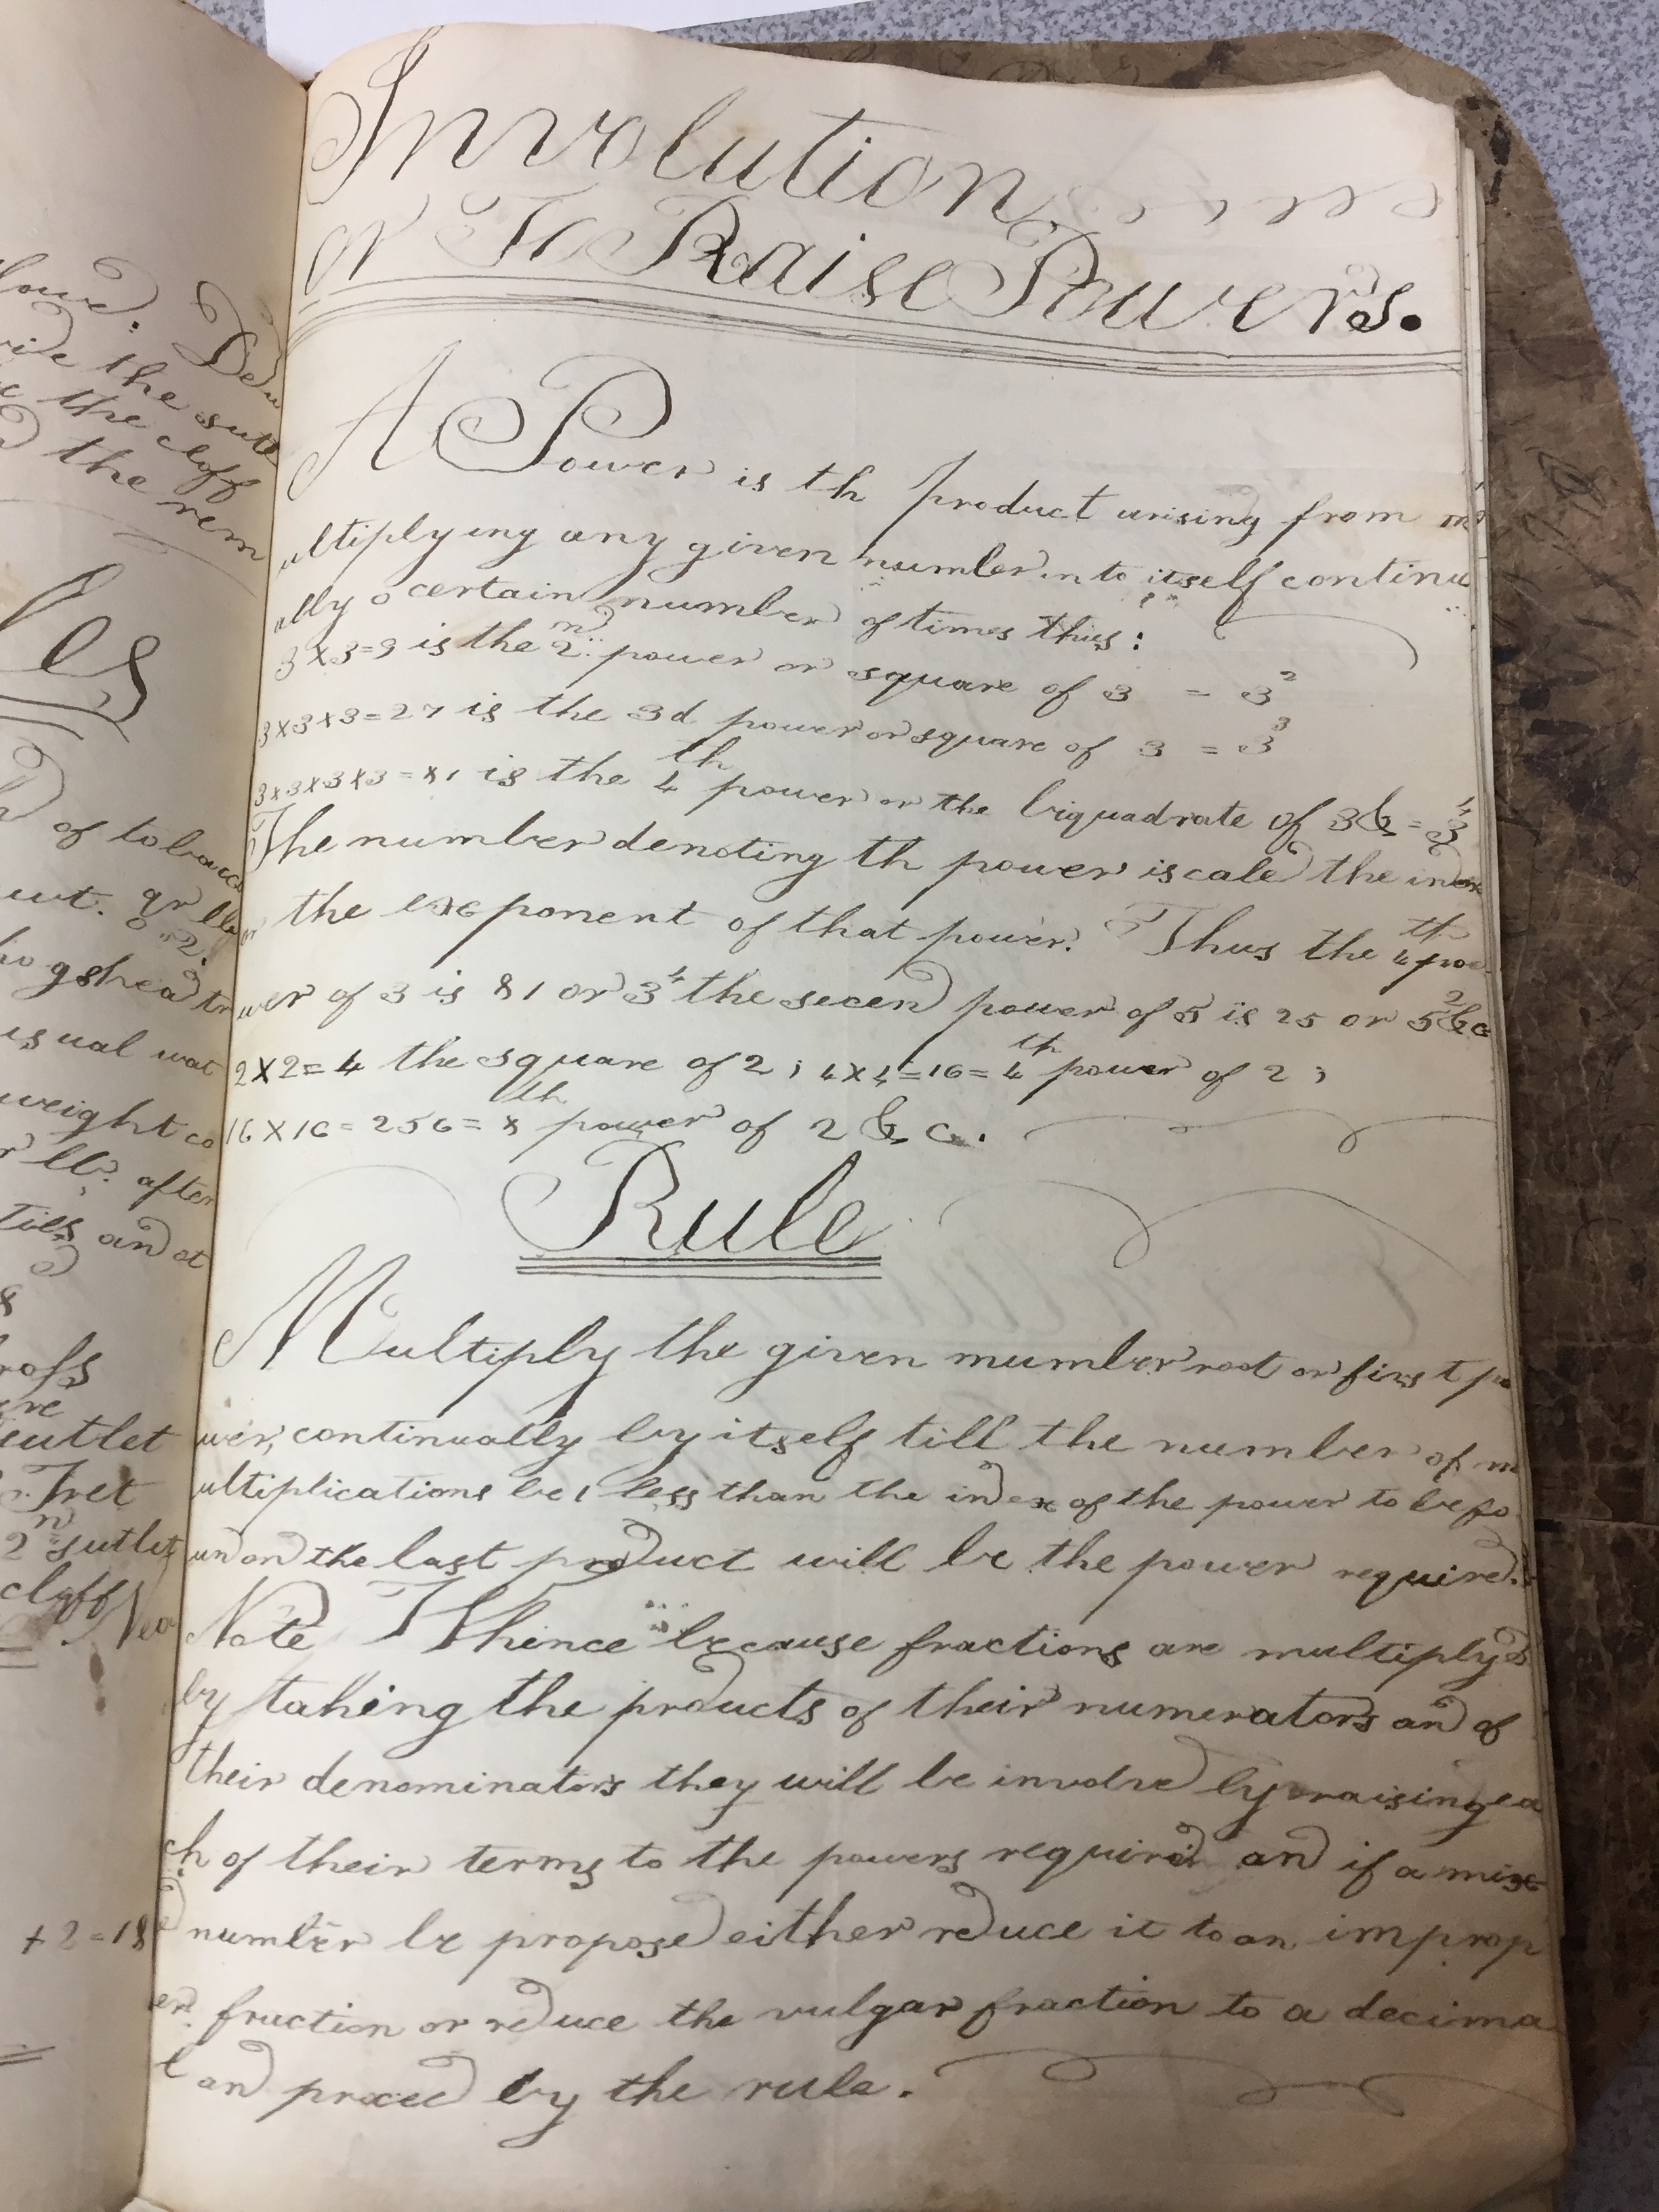 Involution
or To Raise Powers.
A Power is th product arising from m
ultiplying any given number into itself continu
ally a certain number of times thus:
3×3=9 is the 2n power or square of 3 = 3²
3×3×3=27 is the 3d power or square of 3 = 3³
3×3×3×3=81 is the 4th power or the biquadrate of 3 & = 3⁴
The number denoting th power is cale the index
or the exponent of that power. Thus the 4th po
wer of 3 is 81 or 3⁴ the secen power of 5 is 25 or 5² &c
2×2=4 the square of 2; 4×4=16=4th power of 2;
16×16=256=8th power of 2 &c.
Rule
Multiply the given number root or first po
wer, continually by itself till the number of m
ultiplications be 1 less than the index of the power to be fo
und on the last product will be the power require.
Note Thence because fractions are multiplyd
by taking the products of their numerators and of
their denominators they will be involve by raising ea
ch of their terms to the powers required and if a mix
d number be propose either reduce it to an improp
er fraction or reduce the vulgar fraction to a decima
l and proceed by the rule.
the sutt
the cloff
the rem
les
of tobacco
wt. qr lb
hogshead
usual wat
weight
lb. after
and at
sutlet
Tret
2n sutlet
cloff
+2=18